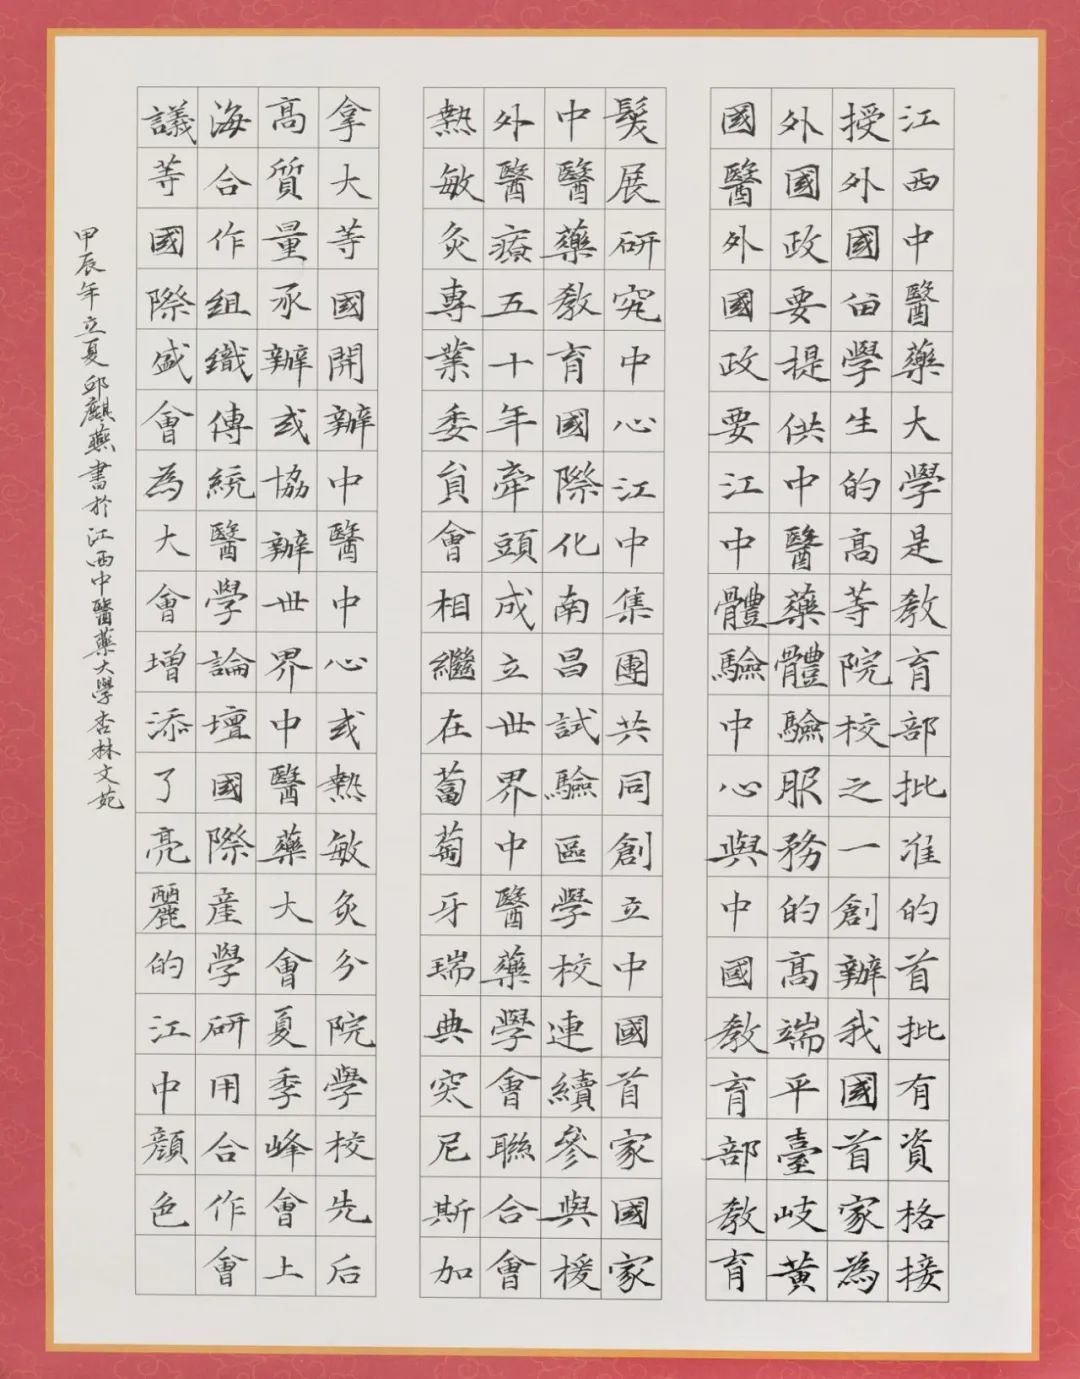 江西中醫藥大學是教育部批准的首批有資格接
授外國留學生的高等院校之一創辦我國首家為
外國政要提供中醫藥體驗服務的高端平臺岐黃
國醫外國政要江中體驗中心與中國教育部教育
髮展研究中心江中集團共同創立中國首家國家
中醫藥教育國際化南昌試驗區學校連續參與援
外醫療五十年牽頭成立世界中醫藥學會聯合會
熱敏灸專業委員會相繼在蔔萄牙瑞典突尼斯加
拿大等國開辦中醫中心或熱敏灸分院學校先后
高質量承辦或協辦世界中醫藥大會夏季峰會上
海合作組織傳統醫學論壇國際產學研用合作會
議等國際盛會為大會增添了亮麗的江中顏色
甲辰年立夏邱麒燕書於江西中醫藥大學杏林文苑